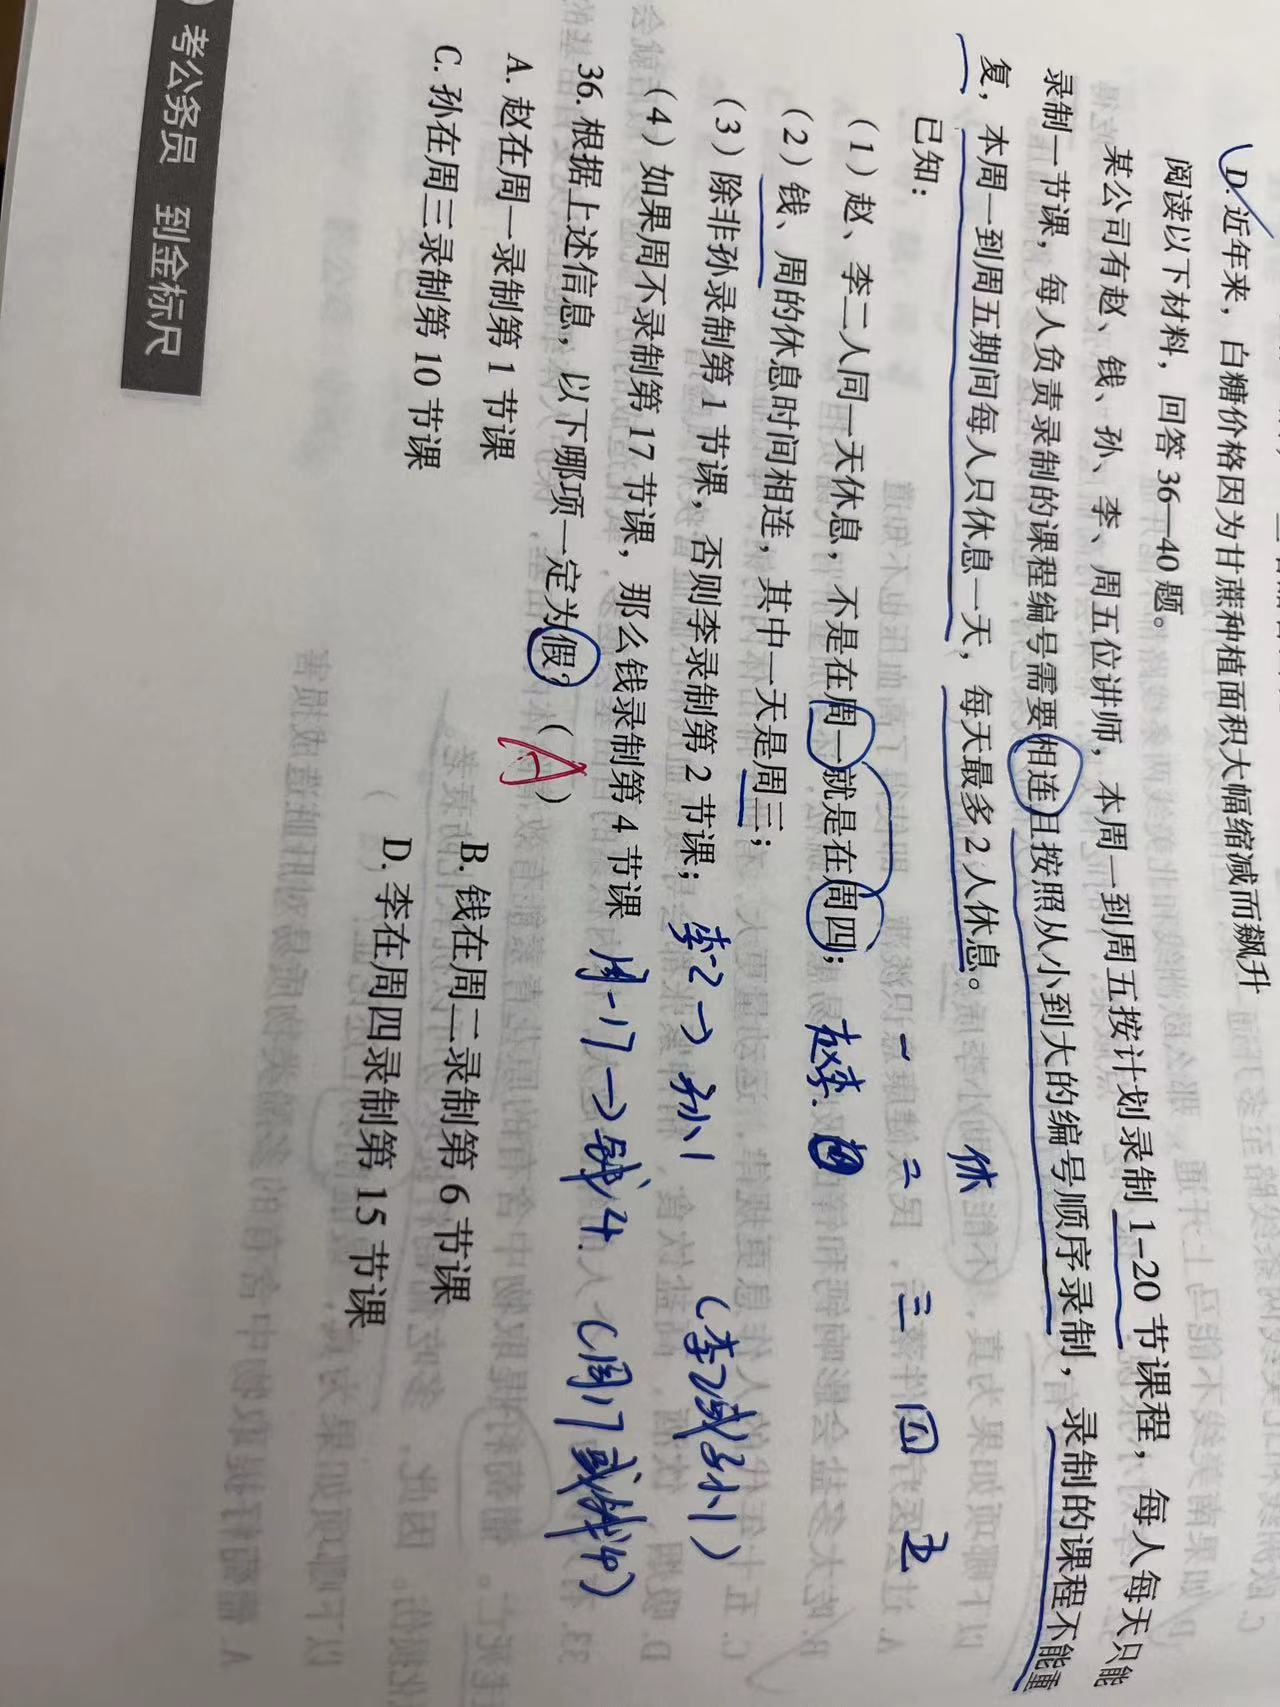 D. 近年来，白糖价格因为甘蔗种植面积大幅缩减而飙升
阅读以下材料，回答 36—40 题。
某公司有赵、钱、孙、李、周五位讲师，本周一到周五按计划录制 1-20 节课程，每人每天只能
录制一节课，每人负责录制的课程编号需要相连且按照从小到大的编号顺序录制，录制的课程不能重
复，本周一到周五期间每人只休息一天，每天最多 2 人休息。
休
已知：
一 二 三 四 五
（1）赵、李二人同一天休息，不是在周一就是在周四；
赵李
（2）钱、周的休息时间相连，其中一天是周三；
（3）除非孙录制第 1 节课，否则李录制第 2 节课；
李2→孙1 （李2或孙1）
（4）如果周不录制第 17 节课，那么钱录制第 4 节课
周-17→钱4 （周17或钱4）
36. 根据上述信息，以下哪项一定为假？（ A ）
A. 赵在周一录制第 1 节课
B. 钱在周二录制第 6 节课
C. 孙在周三录制第 10 节课
D. 李在周四录制第 15 节课
考公务员 到金标尺